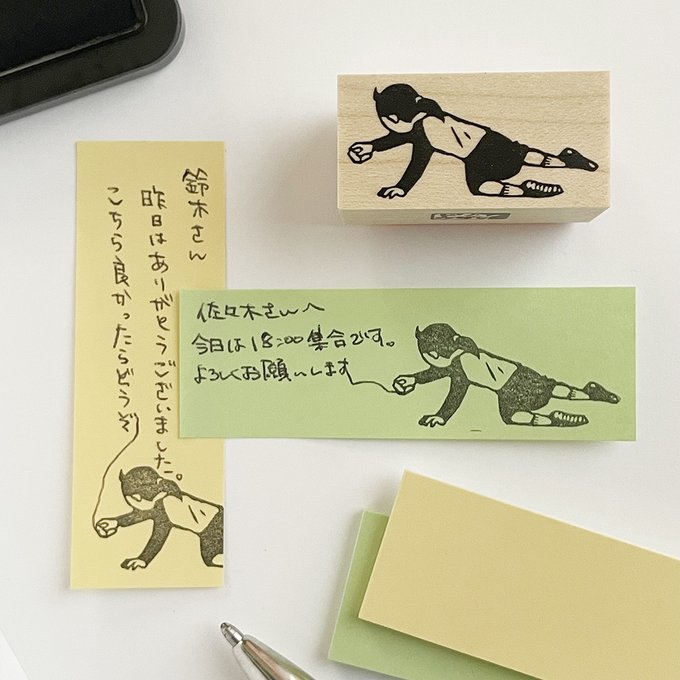 鈴木さん
昨日はありがとうございました。
こちら良かったらどうぞ
佐々木さんへ
今日は18:00集合です。
よろしくお願いします